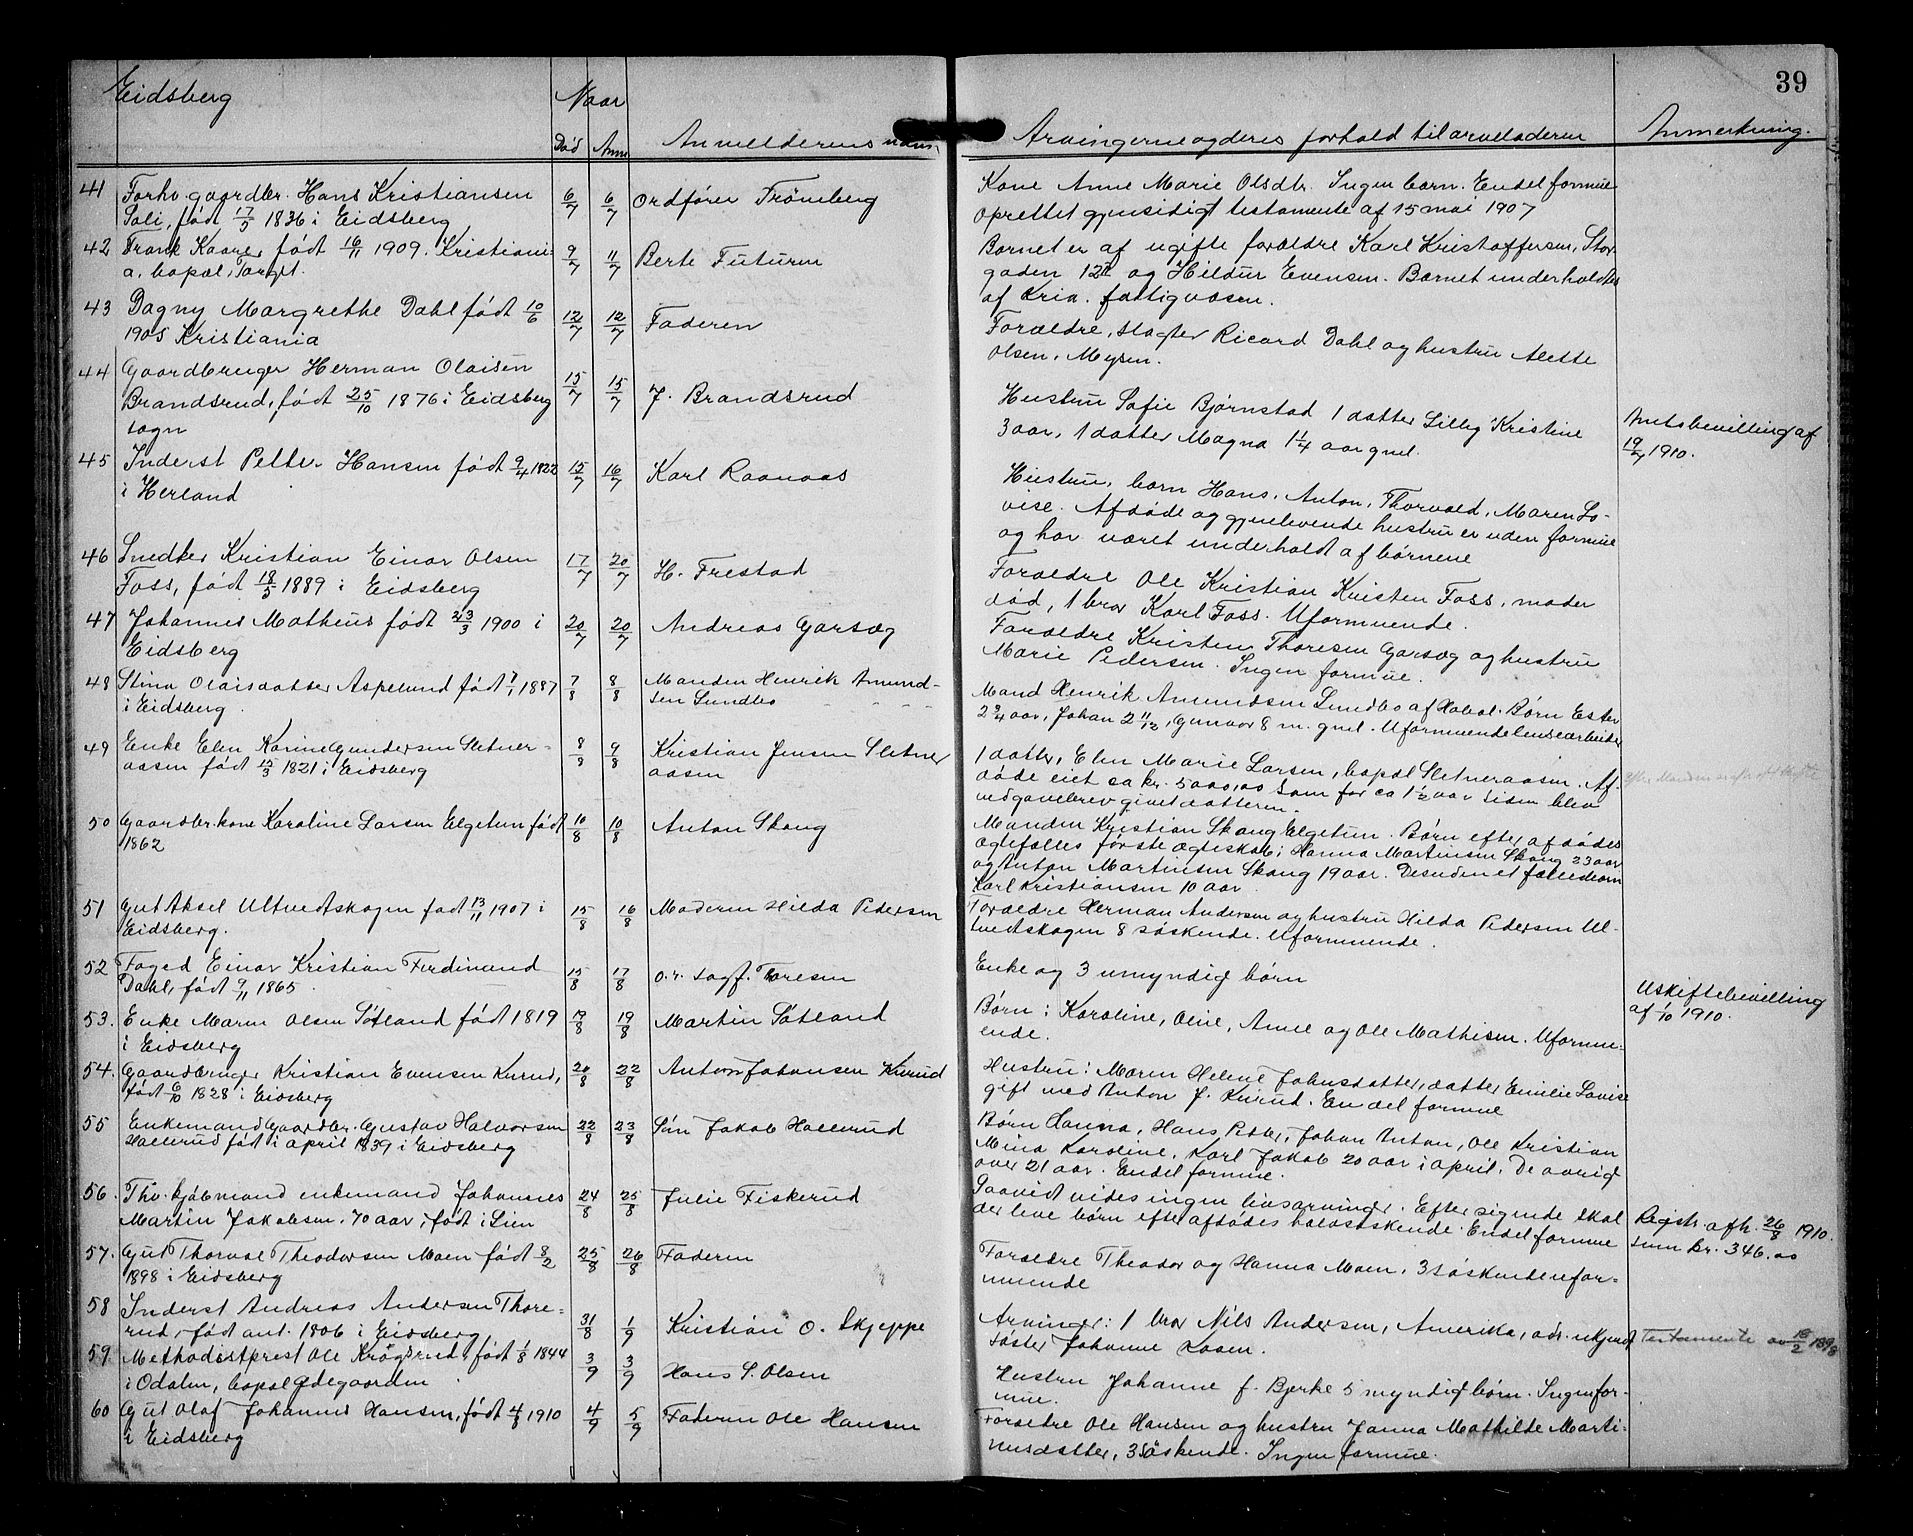 39
Eidsberg
Naar
Død Anm
Anmelderens navn
Arvingerne og deres forhold til arveladeren
Anmerkning.
41 Forhv. gaardbr. Hans Kristiansen
Soli, født 17/5 1836 i Eidsberg
6/7 6/7 Ordfører Trømborg
Kone Anne Marie Olsdtr. Ingen barn. Endel formue
oprettet gjensidigt testamente af 15 mai 1907
42 Frank Kaare, født 16/11 1909. Kristiani-
a, bopæl, Torget.
9/7 11/7 Berte Futurm
Barnet er af ugifte forældre Karl Kristoffersen, Stor-
gaden 12 og Hildur Evensen. Barnet underholdtes
af Kria. fattigvæsen.
43 Dagny Margrethe Dahl født 10/6
1905 Kristiania
12/7 12/7 Faderen
Forældre, slagter Ricard Dahl og hustru Alette
Olsen, Mysen.
44 Gaardbruger Herman Olaisen
Brandsrud, født 25/10 1876 i Eidsberg
sogn
15/7 15/7 J. Brandsrud
Hustru Sofie Bjørnstad 1 datter Lilly Kristine
3 aar, 1 datter Magna 1 1/4 aar gml.
Amtsbevilling af
19/7 1910.
45 Inderst Petter Hansen født 9/4 1822
i Herland
15/7 16/7 Karl Raanaas
Hustru, børn Hans, Anton, Thorvald, Maren Lo-
vise. Afdøde og gjenlevende hustru er uden formue
og har været underholdt af børnene
46 Snedker Kristian Einar Olsen
Foss, født 18/5 1889 i Eidsberg
17/7 20/7 H. Frestad
Forældre Ole Kristian Kristen Foss, moder
død, 1 bror Karl Foss. Uformuende.
47 Johannes Matheus født 23/3 1900 i
Eidsberg
20/7 20/7 Andreas Garsæg
Forældre Kristen Thoresen Garsæg og hustru
Marie Pedersen. Ingen formue.
48 Stina Olaisdatter Aspelund født 7/1 1887
i Eidsberg.
7/8 8/8 Manden Henrik Amund-
sen Sundbo
Mand Henrik Amundsen Sundbo af Hobøl. Børn Ester
2 3/4 aar, Johan 2 11/12, Gunvor 8 m. gml. Uformuende lensearbeider
49 Enke Elen Karine Gundersen Sletner-
aasen født 15/3 1821 i Eidsberg
8/8 9/8 Kristian Jensen Sletner
aasen
1 datter, Elen Marie Larsen, bopæl Sletneraasen. Af-
døde eiet ca kr. 5000,00 som for ca 1 1/2 aar siden blev
ved gavebrev givet datteren.
50 Gaardbr. kone Karoline Larsen Elgetun født
1862
10/8 10/8 Anton Skaug
Manden Kristian Skaug Elgetun. Børn efter afdødes
ægtefælles første ægteskab: Hanna Martinsen Skaug 23 aar
og Anton Martinsen Skaug 19 aar. Desuden et fællesbarn
Karl Kristiansen 10 aar.
51 Gut Aksel Ultvedtskogen født 13/11 1907 i
Eidsberg.
15/8 16/8 Moderen Hilda Pedersen
Forældre Herman Andersen og hustru Hilda Pedersen Ul-
tvedtskogen 8 søskende. Uformuende.
52 Foged Einar Kristian Ferdinand
Dahl, født 9/11 1865.
15/8 17/8 o.r. sagf. Thoresen
Enke og 3 umyndig børn
Uskiftebevilling
af 1/10 1910.
53. Enke Maren Olsen Søtland født 1819
i Eidsberg
19/8 19/8 Martin Søtland
Børn: Karoline, Oline, Anne og Ole Mathisen. Uformu-
ende.
54. Gaardbruger Kristian Evensen Kurud,
født 6/10 1828 i Eidsberg
20/8 22/8 Anton Johansen Kurud
Hustru: Maren Helene Johnsdatter, datter Emilie Lovise
gift med Anton J. Kurud. En del formue
55 Enkemand Gaardbr. Gustav Halvorsen
Hallerud født i april 1839 i Eidsberg
22/8 23/8 Søn Jakob Hallerud
Børn Hanna, Hans Peter, Johan Anton, Ole Kristian
Mina Karoline, Karl Jakob 20 aar i april. De øvrig
over 21 aar. Endel formue.
56. Fhv. kjøbmand enkemand Johannes
Martin Jakobsen. 70 aar, født i Lien
24/8 25/8 Julie Fiskerud
Saavidt vides ingen livsarvinger. Efter sigende skal
der leve børn efter afdødes halvsøskende. Endel formue
Registr. afh. 26/8 1910.
sum kr. 346.00
57. Gut Thorval Theodorsen Moen født 8/2
1898 i Eidsberg
25/8 26/8 Faderen
Forældre Theodor og Hanna Moen, 3 søskende ufor-
muende
58 Inderst Andreas Andersen Thore-
rud, født ant. 1806 i Eidsberg
31/8 1/9 Kristian O. Skjeppe
Arvinger: 1 bror Nils Andersen, Amerika, adr. ukjendt
søster Johanne Aasen.
Testamente av 18/2 1898
59 Methodistprest Ole Krogsrud, født 1/8 1844
i Odalen, bopæl Ødegaarden
3/9 3/9 Hans S. Olsen
Hustru Johanne f. Bjerke 5 myndig børn. Ingen for-
mue.
60 Gut Olaf Johannes Hansen, født 4/8 1910
i Eidsberg
4/9 5/9 Faderen Ole Hansen
Forældre Ole Hansen og hustru Janna Mathilde Marti-
nusdatter, 3 søskende. Ingen formue.